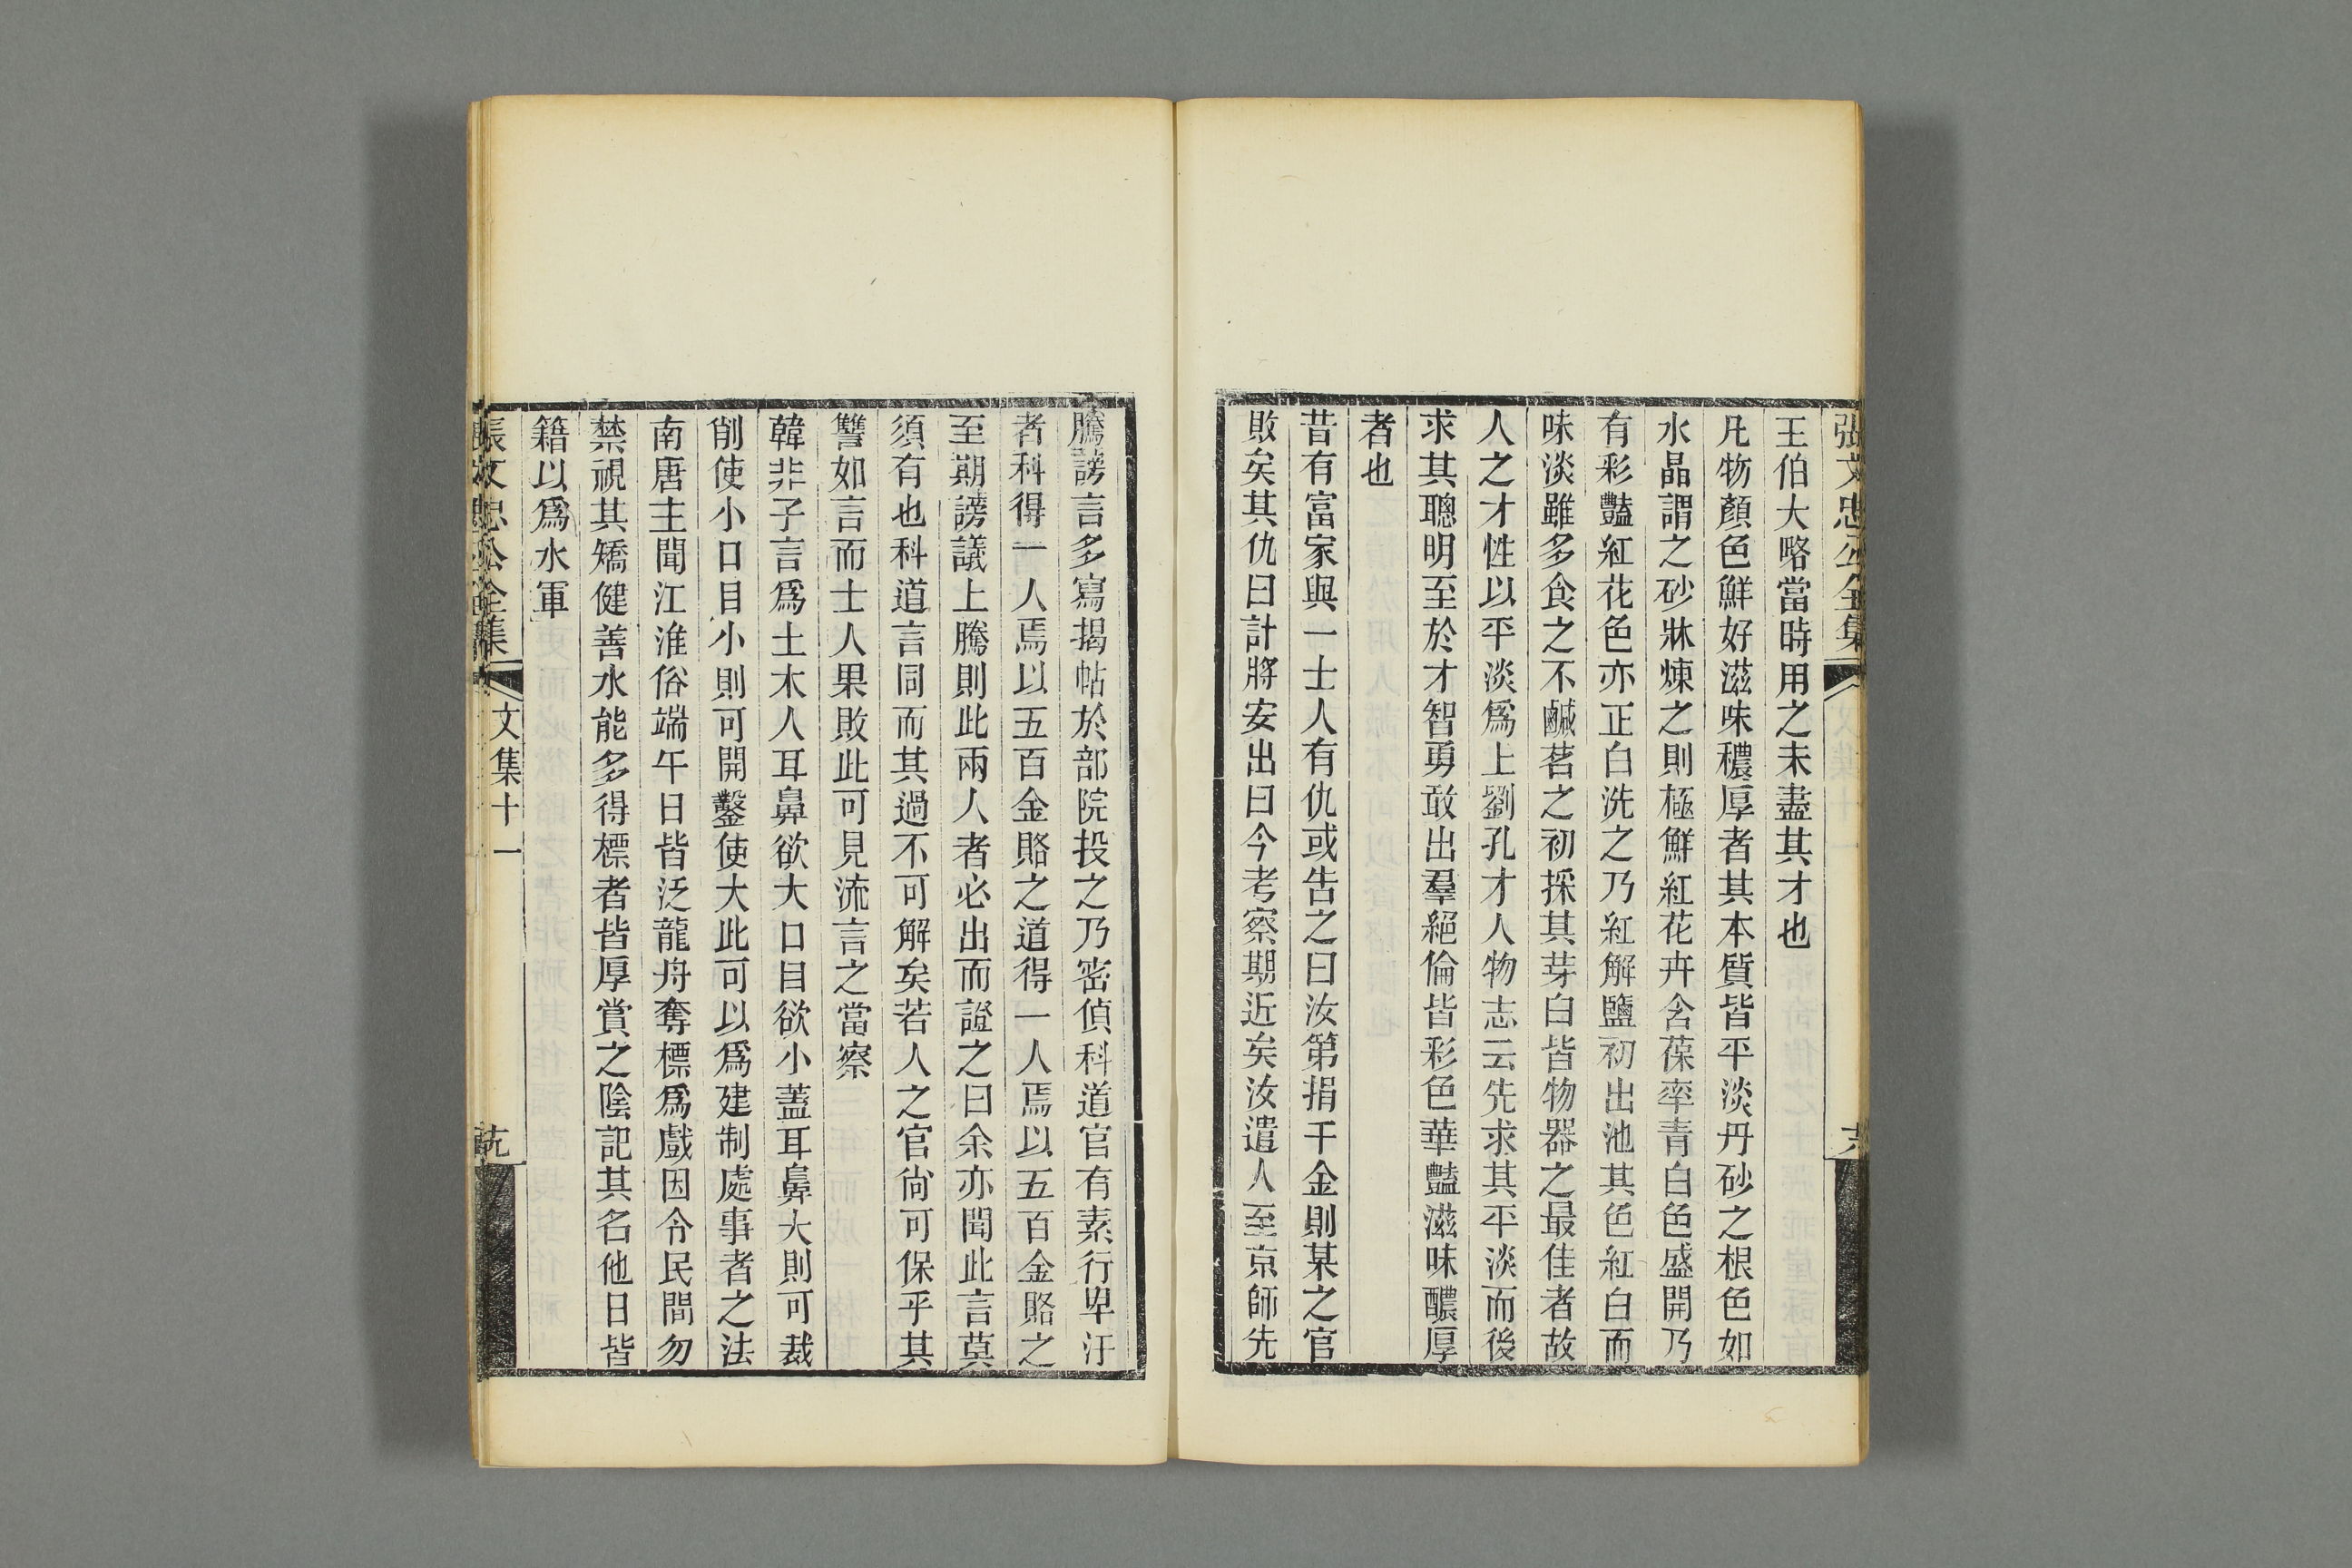 張文忠公全集
六
王伯大略當時用之未盡其才也
凡物顏色鮮好滋味穠厚者其本質皆平淡丹砂之根色如
水晶謂之砂牀煉之則極鮮紅花卉含葆率青白色盛開乃
有彩豔紅花色亦正白洗之乃紅解鹽初出池其色紅白而
味淡雖多食之不鹹茗之初採其芽白皆物器之最佳者故
人之才性以平淡爲上劉孔才人物志云先求其平淡而後
求其聰明至於才智勇敢出羣絕倫皆彩色華豔滋味醲厚
者也
昔有富家與一士人有仇或告之曰汝第捐千金則某之官
敗矣其仇曰計將安出曰今考察期近矣汝遣人至京師先
騰謗言多寫揭帖於部院投之乃密偵科道官有素行卑汙
者科得一人焉以五百金賂之道得一人焉以五百金賂之
至期謗議上騰則此兩人者必出而證之曰余亦聞此言莫
須有也科道言同而其過不可解矣若人之官尙可保乎其
讐如言而士人果敗此可見流言之當察
韓非子言爲土木人耳鼻欲大口目欲小蓋耳鼻大則可裁
削使小口目小則可開鑿使大此可以爲建制處事者之法
南唐主聞江淮俗端午日皆泛龍舟奪標爲戲因令民間勿
禁視其矯健善水能多得標者皆厚賞之陰記其名他日皆
籍以爲水軍
張文忠公全集
文集十一